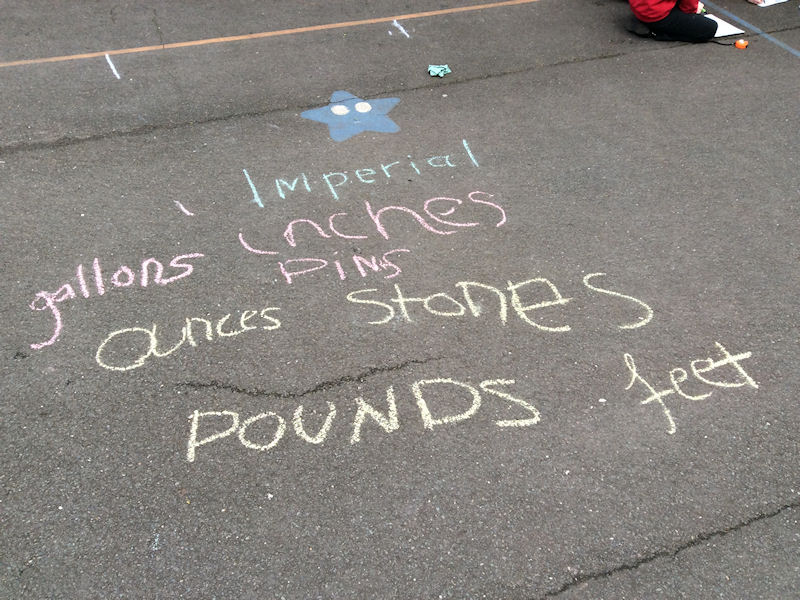 Imperial
inches
gallons pins
ounces stones
POUNDS feet